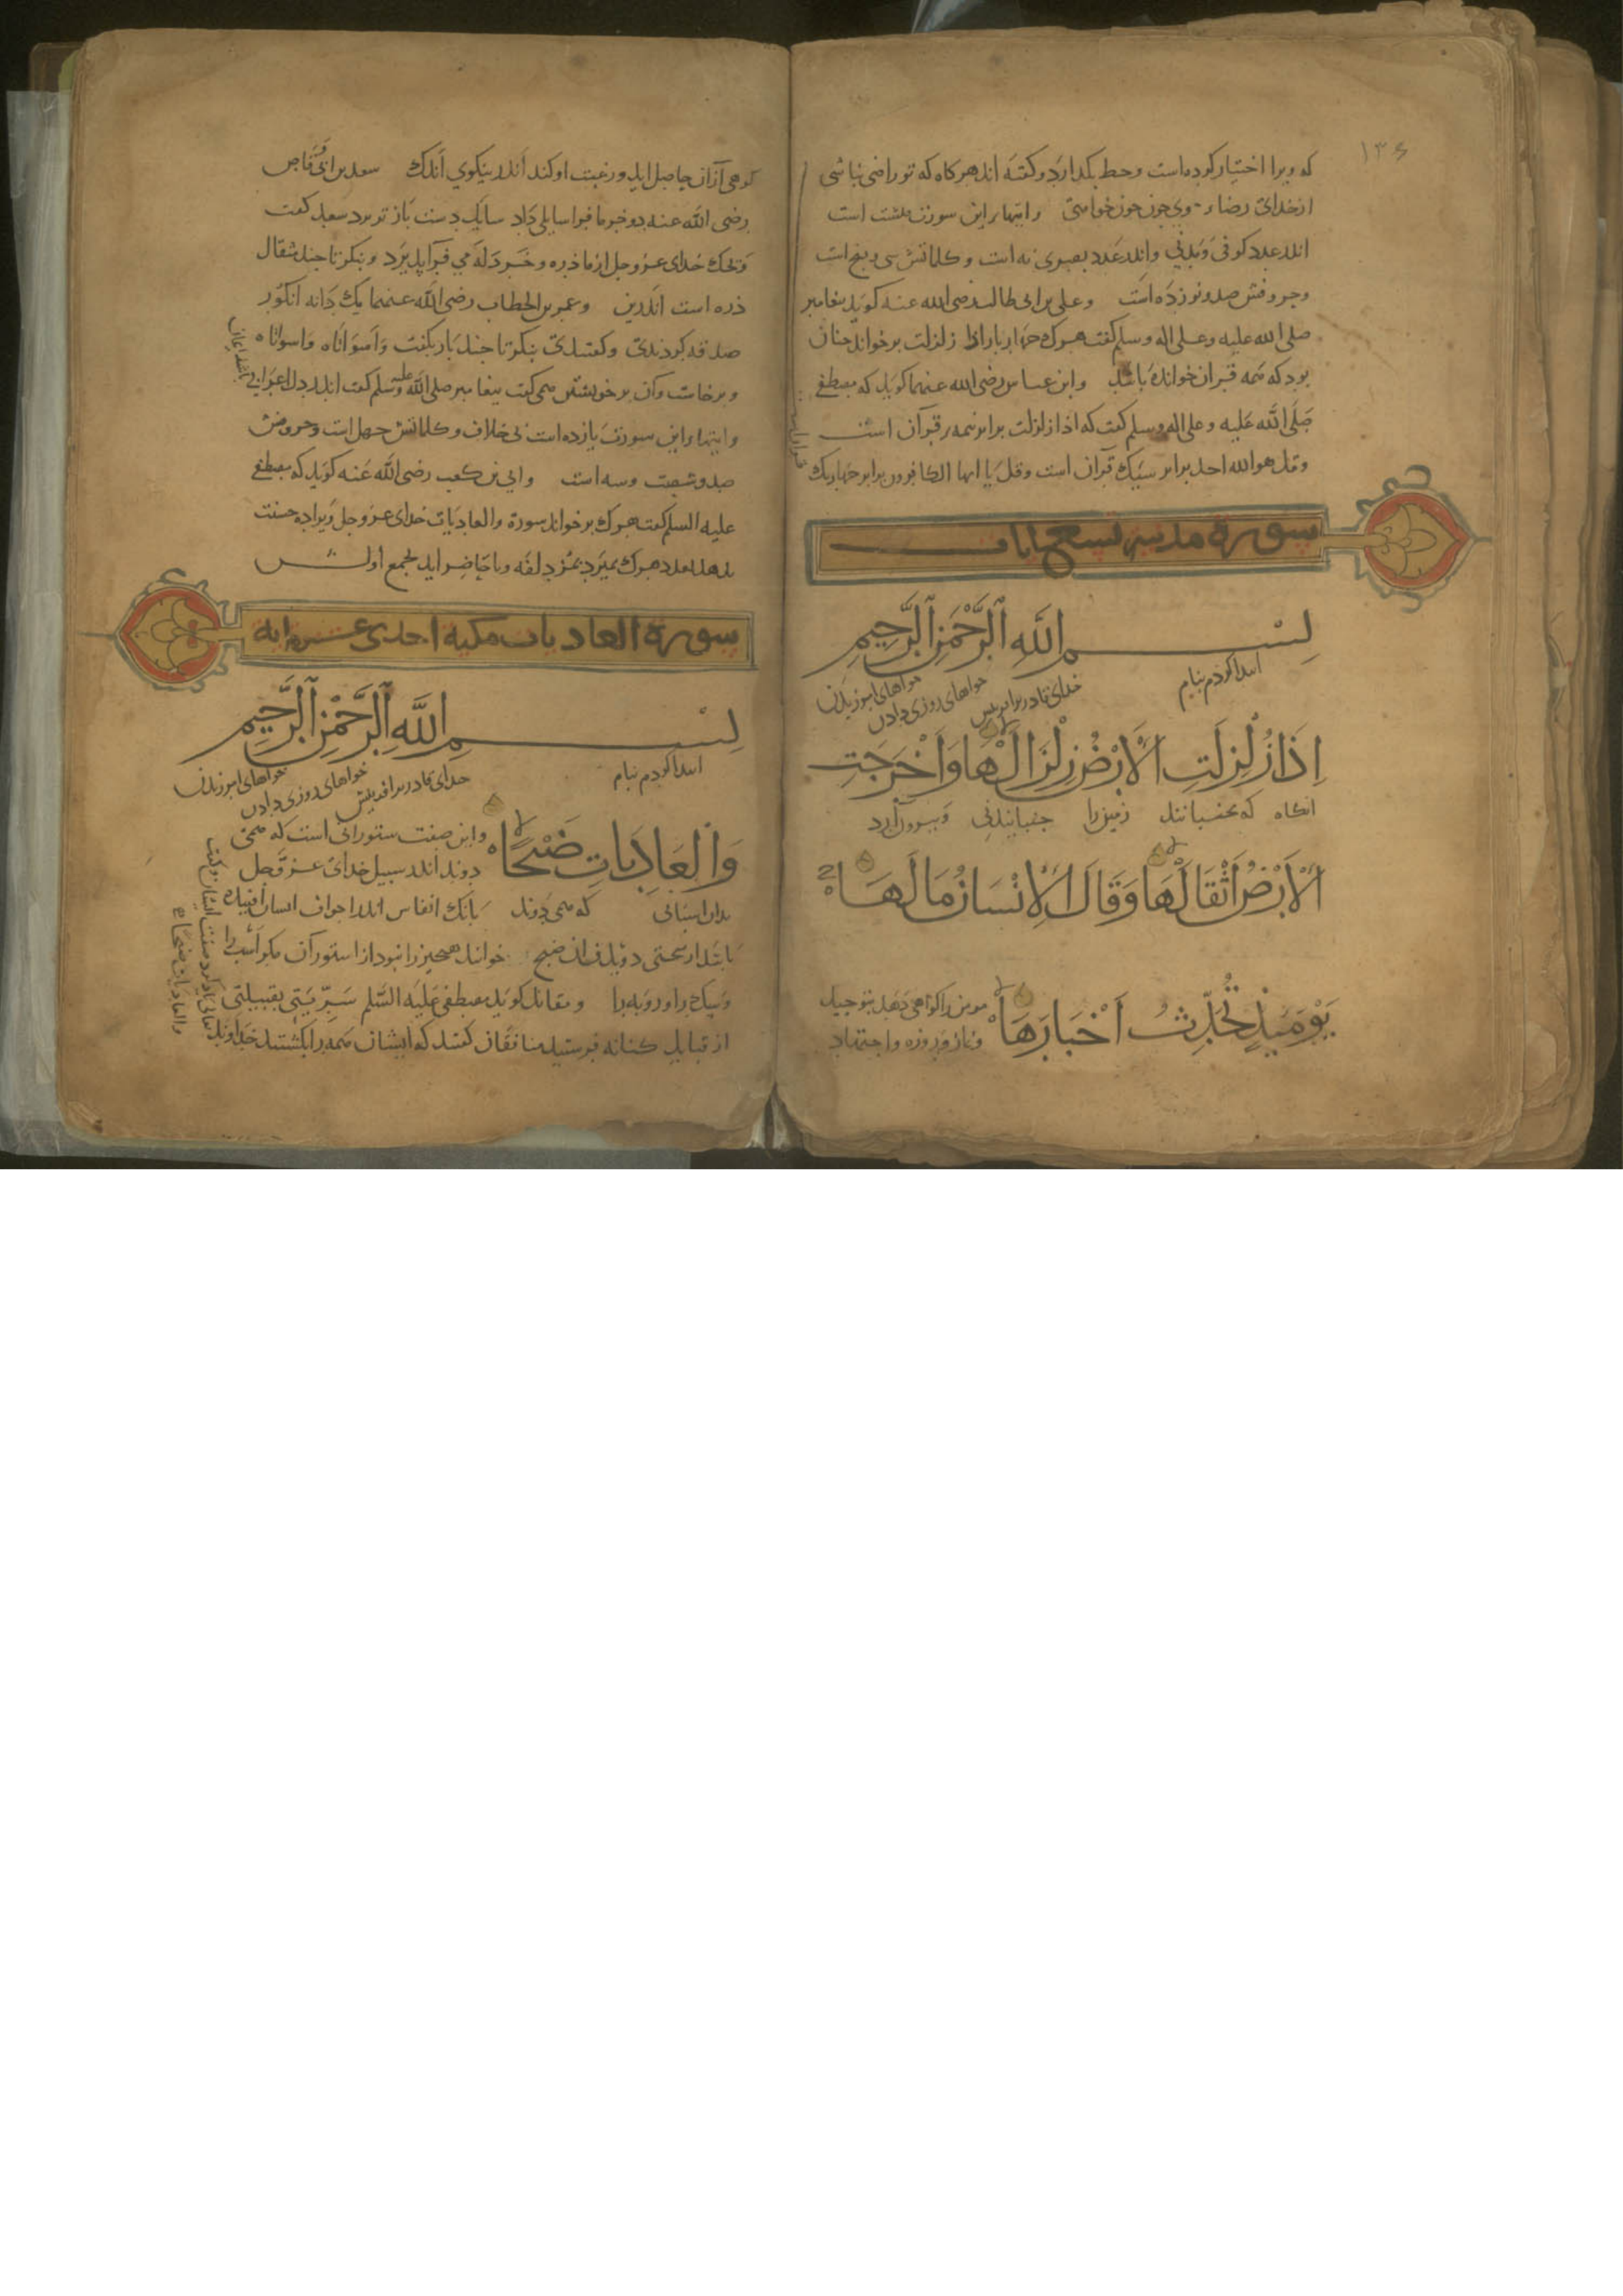 ۱۳۶
که ویرا اختیار کرده است وحظ بگذارد وگفته اند هرکاه که تو راضی نباشی
از خدای رضاء وی چون خواهی وایتهاء این سورت هشت است
اندر عدد کوفی ومدنی واندر عدد بصری نه است وکلماتش سی وپنج است
وحروفش صد ونوزده است وعلی بن ابی طالب رضی الله عنه کوید پیغامبر
صلی الله علیه وعلی اله وسلم کفت هرک چهار بار اذا زلزلت برخواند چنان
بود که همه قران خوانده باشد وابن عباس رضی الله عنهما کوید که مصطفی
صلی الله علیه وعلی اله وسلم کفت که اذا زلزلت برابر نیمه قرآن است
وقل هو الله احد برابر سیک قرآن است وقل یا ایها الکافرون برابر چهاریک
سورة مدنیه تسع ایات
بِسْمِ اللَّهِ الرَّحْمَنِ الرَّحِيمِ
ابتدا کردم بنام خدای قادر بر افرینش خواهای روزی دادن خواهای امرزیدن
اِذَا زُلْزِلَتِ الْاَرْضُ زِلْزَالَهَا وَاَخْرَجَتِ
انکاه که بجنبانند زمین را جنبانیدنی وبیرون آرد
الْاَرْضُ اَثْقَالَهَا وَقَالَ الْاِنْسَانُ مَا لَهَا
يَوْمَئِذٍ تُحَدِّثُ اَخْبَارَهَا
مومن را کواهی دهد بتوحید
ونماز وروزه واجتهاد
کوهی ازان حاصل اید ورغبت او کند اندر نیکوی اندک سعد بن ابی وقاص
رضی الله عنه دو خرما فرا سایلی داد سایل دست باز تو برد سعد کفت
ویحک خدای عز وجل از ما ذره وخردله می فراپذیرد وبنکر تا چند مثقال
ذره است اندرین وعمر بن الخطاب رضی الله عنهما یک دانه انکور
صدقه کردندی وکفتندی بنکر تا چند بار بکفت واسواتاه واسواتاه
وبرخاست وآن برخویشتن همی کفت پیغامبر صلی الله علیه وسلم کفت اندر دل اعرابی
وایتهاء این سورت یازده است بی خلاف وکلماتش چهل است وحروفش
صد وشصت وسه است وابی بن کعب رضی الله عنه کوید که مصطفی
علیه السلم کفت هرک برخواند سورة والعادیات خدای عز وجل ویرا ده حسنت
بدهد بعدد هرک بمزدلفه وبا حاضر اید بجمع
سورة العادیات مکیه احدی عشره ایه
بِسْمِ اللَّهِ الرَّحْمَنِ الرَّحِيمِ
ابتدا کردم بنام خدای قادر بر افرینش خواهای روزی دادن خواهای امرزیدن
وَالْعَادِيَاتِ ضَبْحًا
واین صفت ستورانی است که همی
دوند اندر سبیل خدای عز وجل
بدان اسپانی که همی دوند بانک انفاس اندر اجواف ایشان افتاده
باشد از سختی دویدن ان ضبح خوانند هیچیز را نبود از ستوران مکر اسب را
وسک را وروبه را ومقاتل کوید مصطفی علیه السلم سریتی بقبیلتی
از قبایل کنانه فرستید منافقان کفتند که ایشان همه را بکشتند خداوند
تعالی یاد کرد صفت ایشان وکفت
والعادیات ضبحا